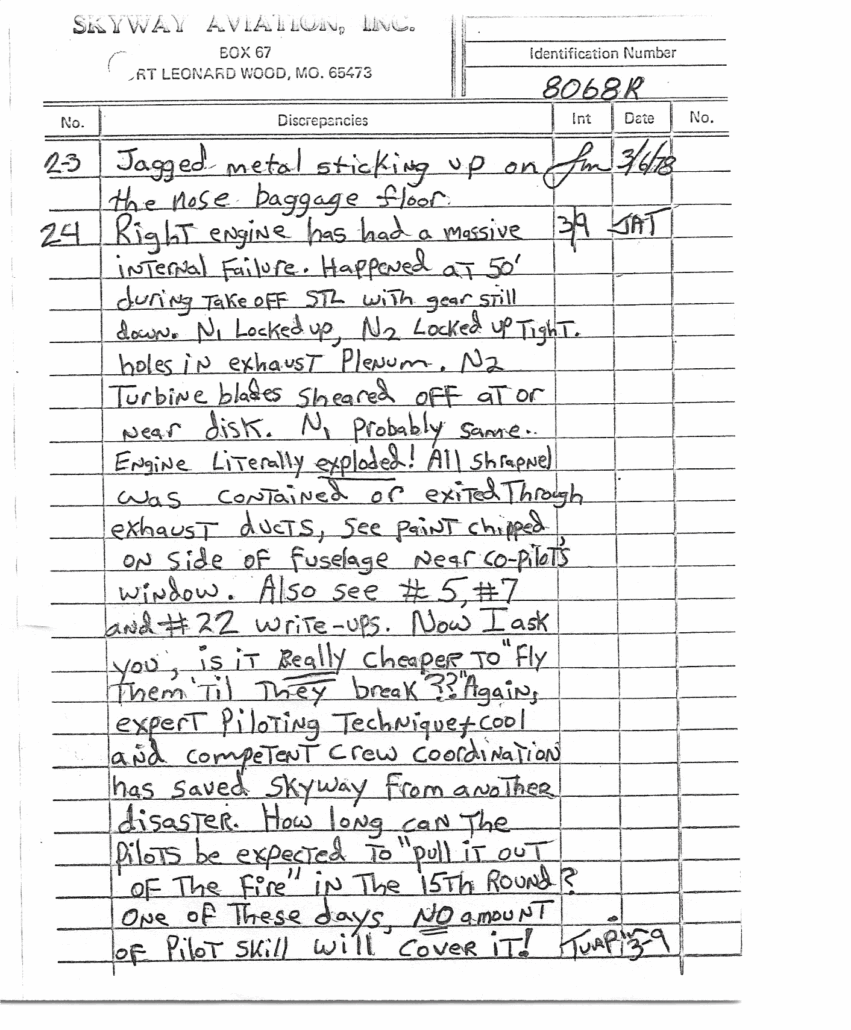 SKYWAY AVIATION, INC.
BOX 67
RT LEONARD WOOD, MO. 65473
Identification Number
8068R
No. Discrepancies Int Date No.
23 Jagged metal sticking up on 3/6/78
the nose baggage floor.
24 Right engine has had a massive 3/9 JAT
internal Failure. Happened at 50'
during Take off STL with gear still
down. N1 Locked up, N2 Locked up Tight.
holes in exhaust Plenum. N2
Turbine blades sheared off at or
near disk. N1 probably same..
Engine Literally exploded! All shrapnel
was contained or exited Through
exhaust ducts, see paint chipped
on side of fuselage near co-pilot's
window. Also see #5, #7
and #22 write-ups. Now I ask
you, is it Really Cheaper To "Fly
Them 'Til They break??" Again,
expert Piloting Technique + cool
and competent crew coordination
has saved Skyway From another
disaster. How long can The
Pilots be expected To "pull it out
of The Fire" in The 15th Round?
One of These days, NO amount
of Pilot skill will cover it! Turpin 3-9